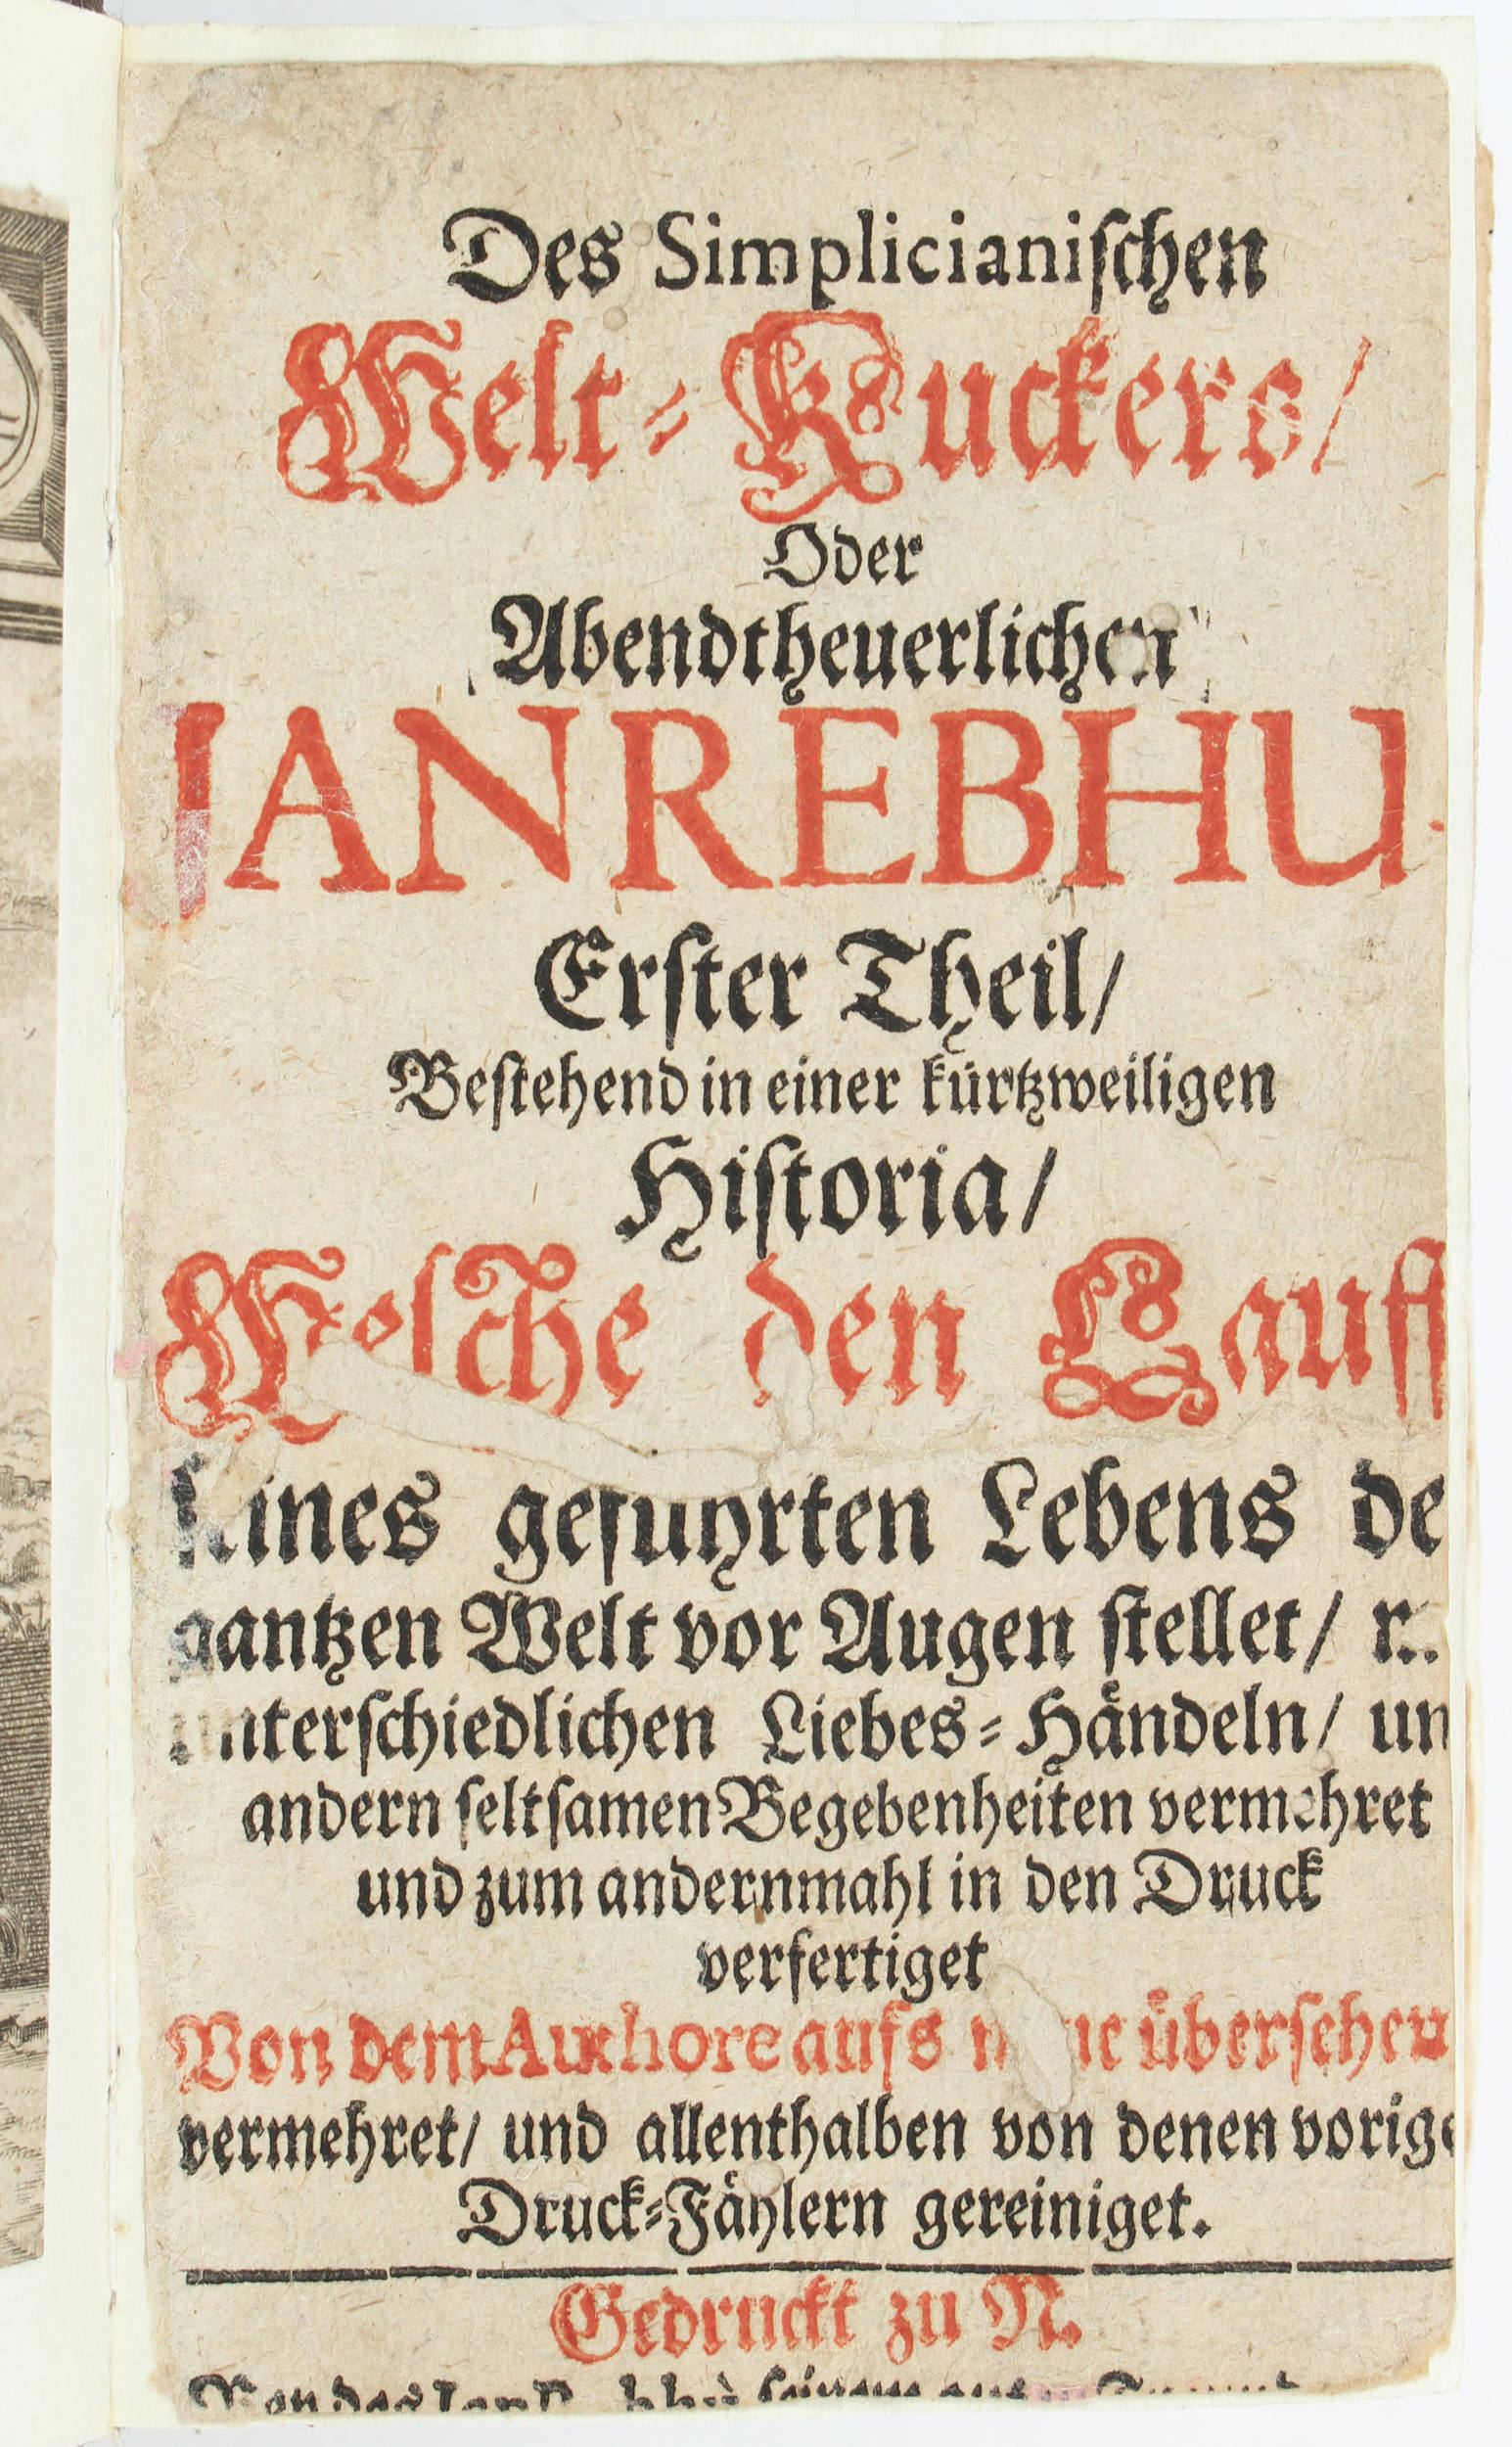 Des Simplicianiſchen
Welt-Kuckers/
Oder
Abendtheuerlichen
JANREBHU
Erſter Theil/
Beſtehend in einer kürtzweiligen
Hiſtoria/
Welche den Lauff
ſeines gefuhrten Lebens de
gantzen Welt vor Augen ſtellet/
unterſchiedlichen Liebes-Händeln/ un
andern ſeltſamen Begebenheiten vermehret
und zum andernmahl in den Druck
verfertiget
Von dem Authore aufs neue überſehen
vermehret/ und allenthalben von denen vorige
Druck-Fählern gereiniget.
Gedruckt zu N.